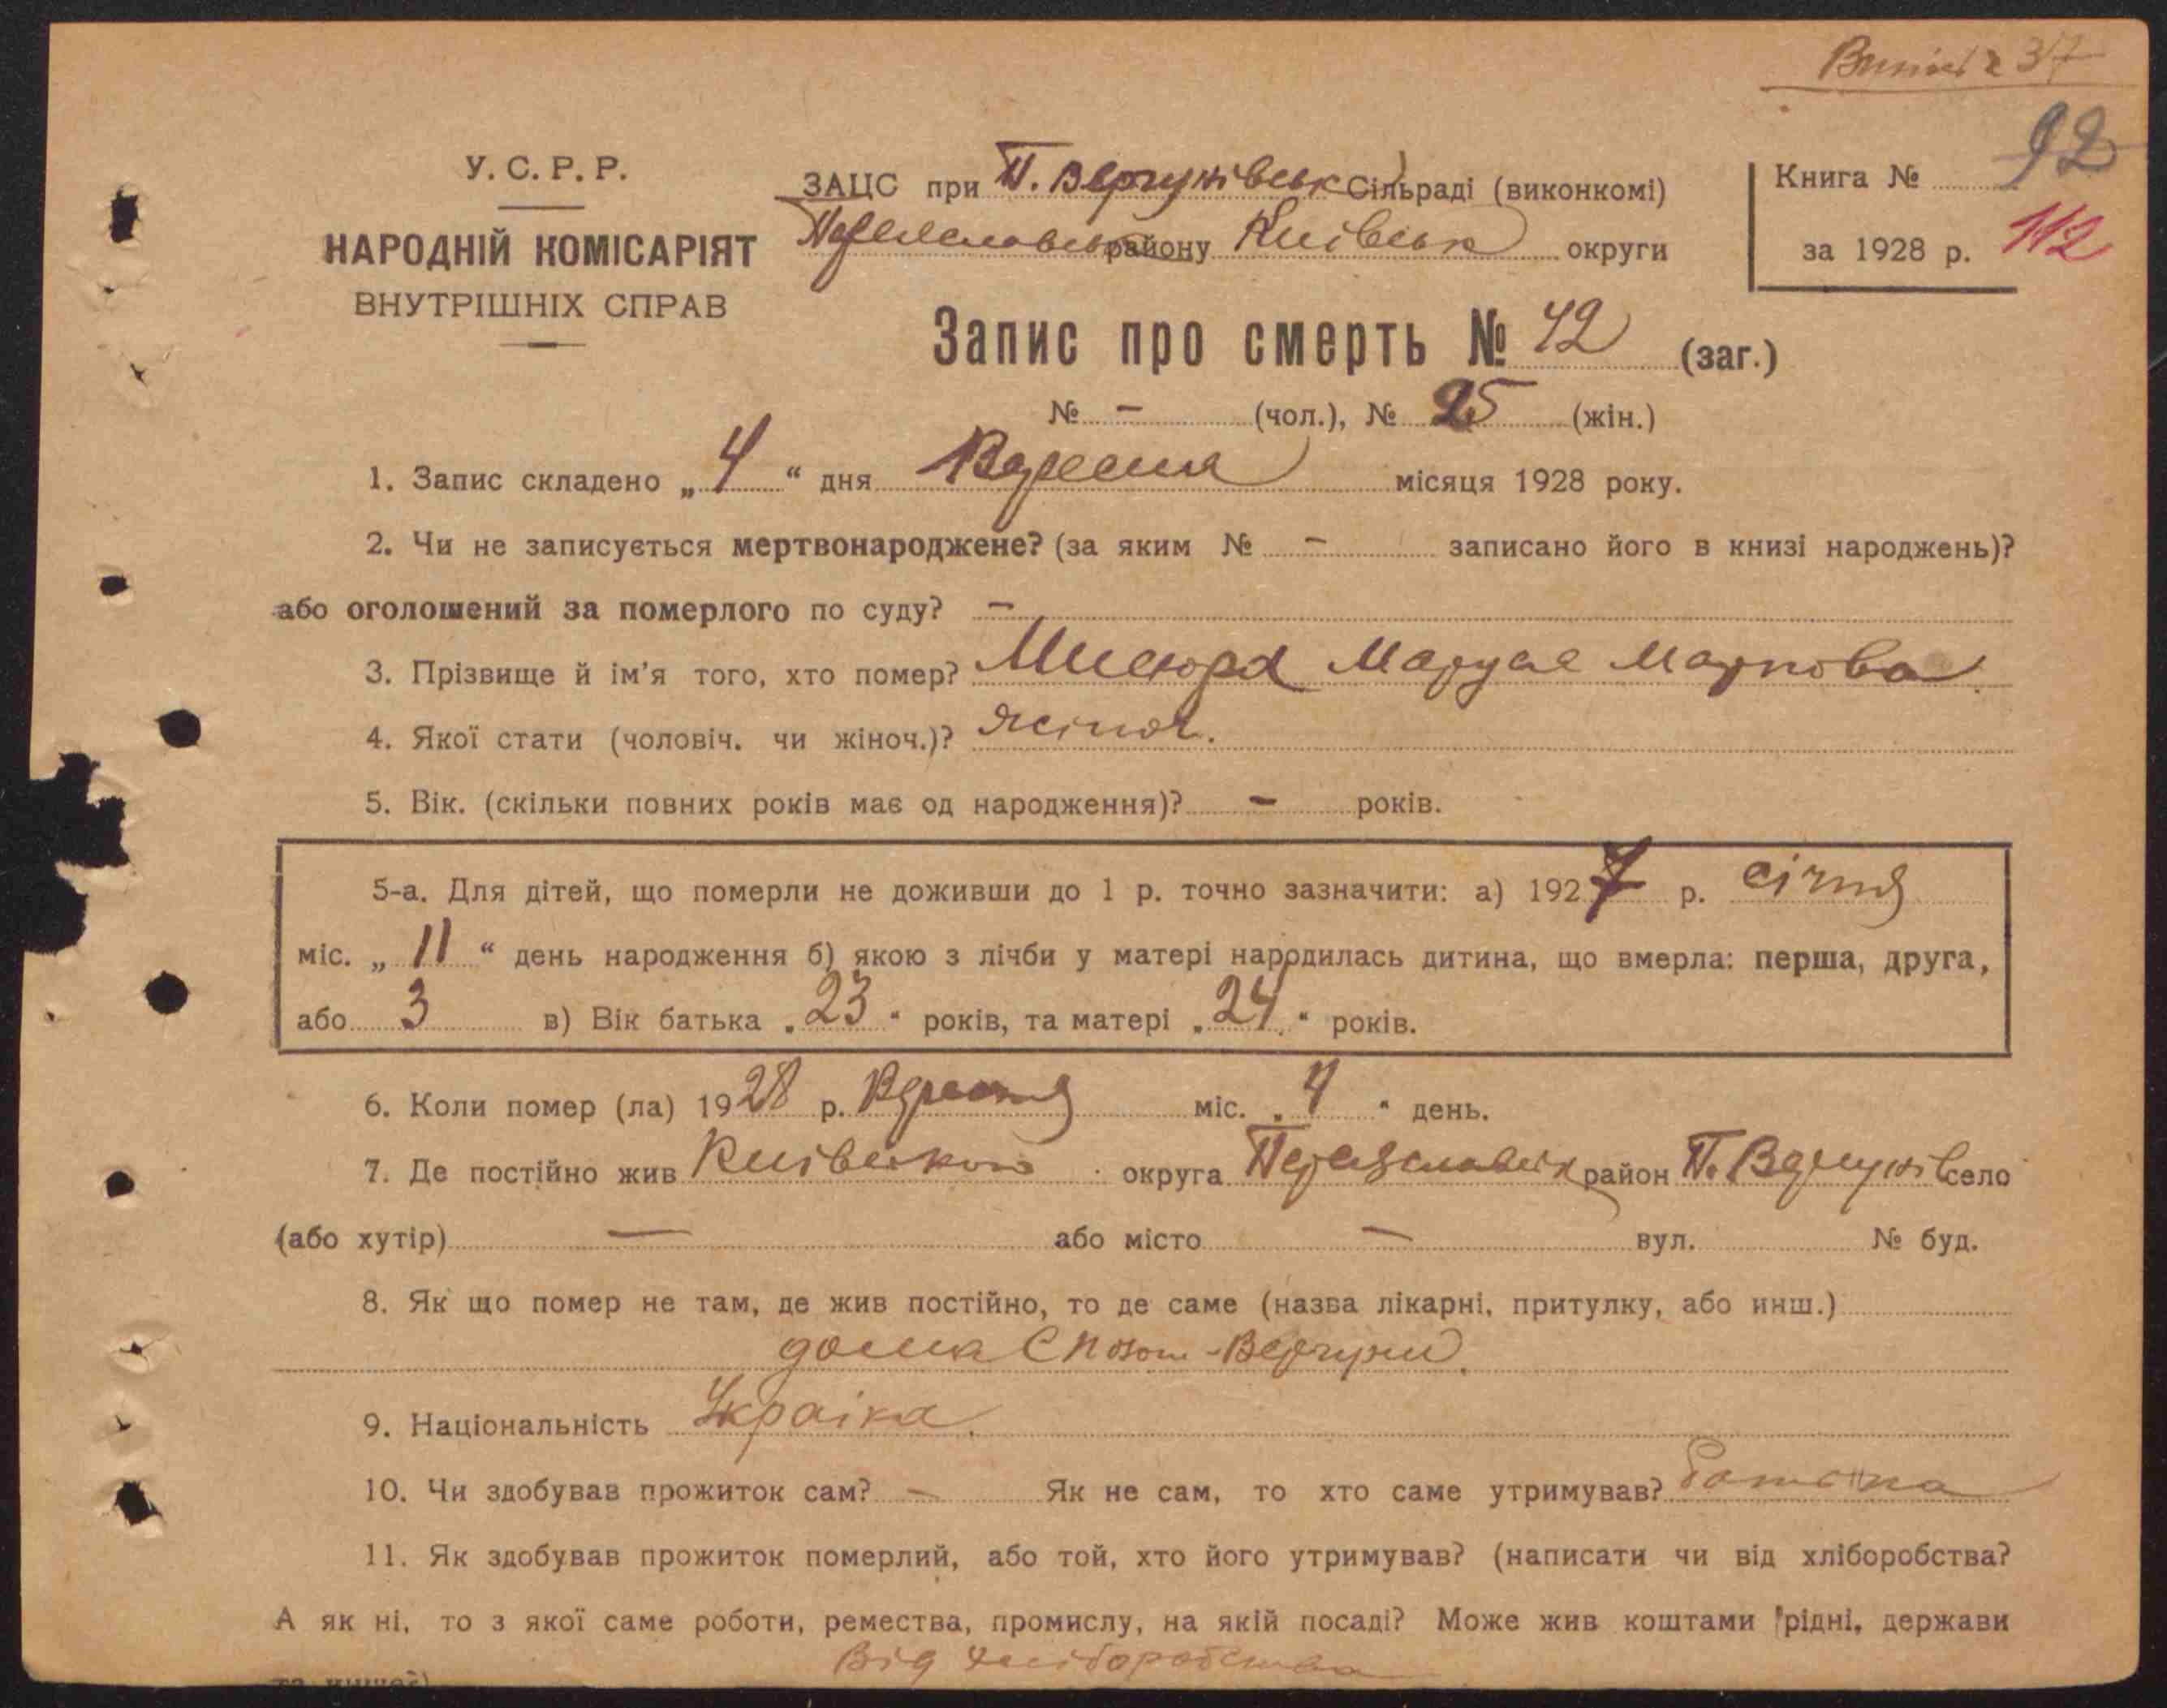 37
92
У. С. Р. Р.
НАРОДНІЙ КОМІСАРІЯТ
ВНУТРІШНІХ СПРАВ
ЗАЦС при П. Вергунівськ Сільраді (виконкомі)
Переяславськ району Київськ округи
Книга №
за 1928 р. 112
Запис про смерть № 42 (заг.)
№ – (чол.), № 25 (жін.)
1. Запис складено „ 4 “ дня Вересня місяця 1928 року.
2. Чи не записується мертвонароджене? (за яким № – записано його в книзі народжень)?
або оголошений за померлого по суду? –
3. Прізвище й ім'я того, хто помер? Мисюра Маруся Маркова
4. Якої стати (чоловіч. чи жіноч.)? жіноч.
5. Вік. (скільки повних років має од народження)? – років.
5-а. Для дітей, що померли не доживши до 1 р. точно зазначити: а) 1927 р. січня
міс. „ 11 “ день народження б) якою з лічби у матері народилась дитина, що вмерла: перша, друга,
або 3 в) Вік батька „ 23 “ років, та матері „ 24 “ років.
6. Коли помер (ла) 1928 р. Вересня міс. „ 4 “ день.
7. Де постійно жив Київською округа Переяславськ район П. Вергунів село
(або хутір) — або місто — вул. № буд.
8. Як що помер не там, де жив постійно, то де саме (назва лікарні, притулку, або инш.)
дома С Вергуни.
9. Національність Украіка.
10. Чи здобував прожиток сам? – Як не сам, то хто саме утримував?
11. Як здобував прожиток померлий, або той, хто його утримував? (написати чи від хліборобства?
А як ні, то з якої саме роботи, ремества, промислу, на якій посаді? Може жив коштами рідні, держави
Від хліборобства
та инше?)